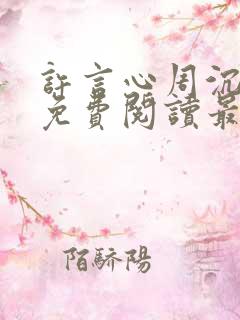 許言心周沉
免費閱讀最
陌驕陽